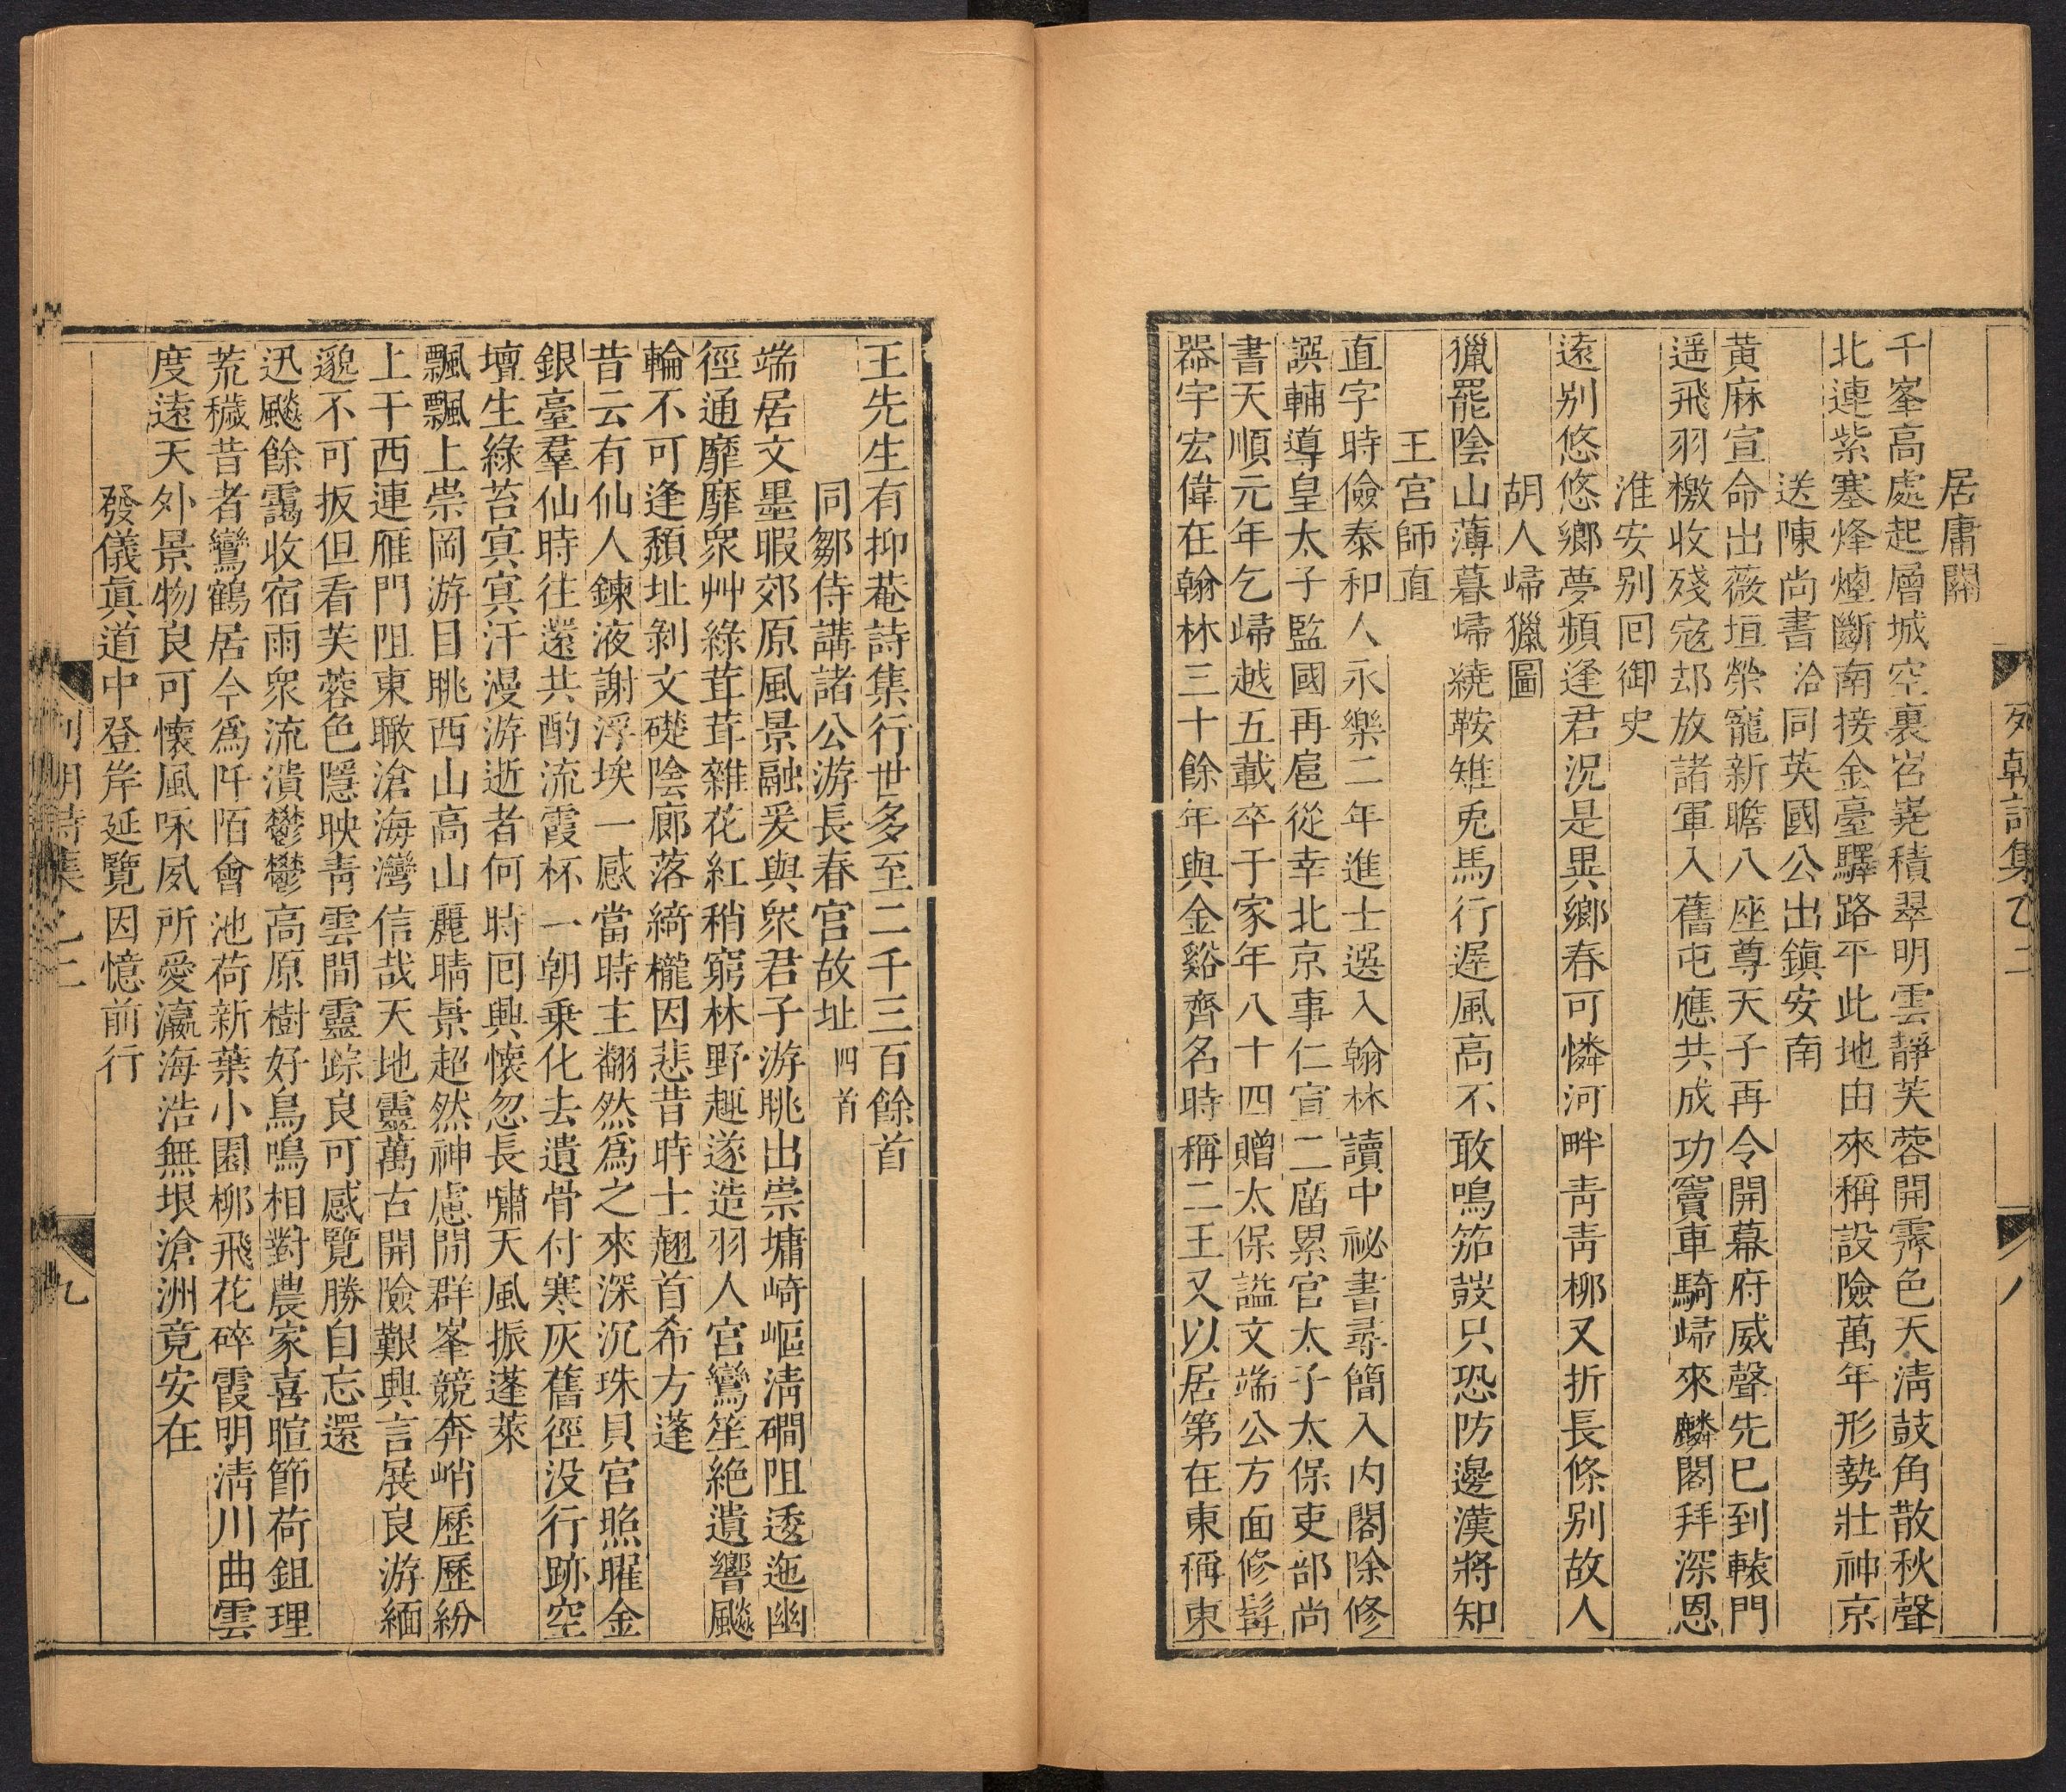 列朝詩集乙二 八
居庸關
千峯高處起層城空裏岧嶤積翠明雲靜芙蓉開霽色天淸鼓角散秋聲
北連紫塞烽煙斷南接金臺驛路平此地由來稱設險萬年形勢壯神京
送陳尚書洽同英國公出鎭安南
黄麻宣命出薇垣榮寵新瞻八座尊天子再令開幕府威聲先已到轅門
遥飛羽檄收殘寇却放諸軍入舊屯應共成功竇車騎歸來麟閣拜深恩
淮安别回御史
遠别悠悠鄉夢頻逢君況是異鄉春可憐河畔靑靑柳又折長條别故人
胡人歸獵圖
獵罷陰山薄暮歸繞鞍雉兎馬行遲風高不敢鳴笳鼓只恐防邊漢將知
王宮師直
直字時儉泰和人永樂二年進士選入翰林讀中祕書尋簡入内閣除修
譔輔導皇太子監國再扈從幸北京事仁宣二廟累官太子太保吏部尚
書天順元年乞歸越五載卒于家年八十四贈太保謚文端公方面修髯
器宇宏偉在翰林三十餘年與金谿齊名時稱二王又以居第在東稱東
王先生有抑菴詩集行世多至二千三百餘首
同鄒侍講諸公游長春宮故址四首
端居文墨暇郊原風景融爰與衆君子游眺出崇墉崎嶇淸磵阻逶迤幽
徑通靡靡衆艸綠茸茸雜花紅稍窮林野趣遂造羽人宮鸞笙絶遺響飈
輪不可逢頽址剝文礎陰廊落綺櫳因悲昔時士翹首希方蓬
昔云有仙人鍊液謝浮埃一感當時主翻然爲之來深沉珠貝宮照曜金
銀臺羣仙時往還共酌流霞杯一朝乗化去遺骨付寒灰舊徑没行跡空
壇生綠苔冥冥汗漫游逝者何時囘興懷忽長嘯天風振蓬萊
飄飄上崇岡游目眺西山高山麗晴景超然神慮閒群峯競奔峭歷歷紛
上干西連雁門阻東瞰滄海灣信哉天地靈萬古開險艱興言展良游緬
邈不可扳但看芙蓉色隱映靑雲間靈踪良可感覽勝自忘還
迅飈餘靄收宿雨衆流潰鬱鬱高原樹好鳥鳴相對農家喜暄節荷鉏理
荒穢昔者鸞鶴居今爲阡陌會池荷新葉小園柳飛花碎霞明淸川曲雲
度遠天外景物良可懷風咏夙所愛瀛海浩無垠滄洲竟安在
發儀眞道中登岸延覽因憶前行
列朝詩集乙二 九